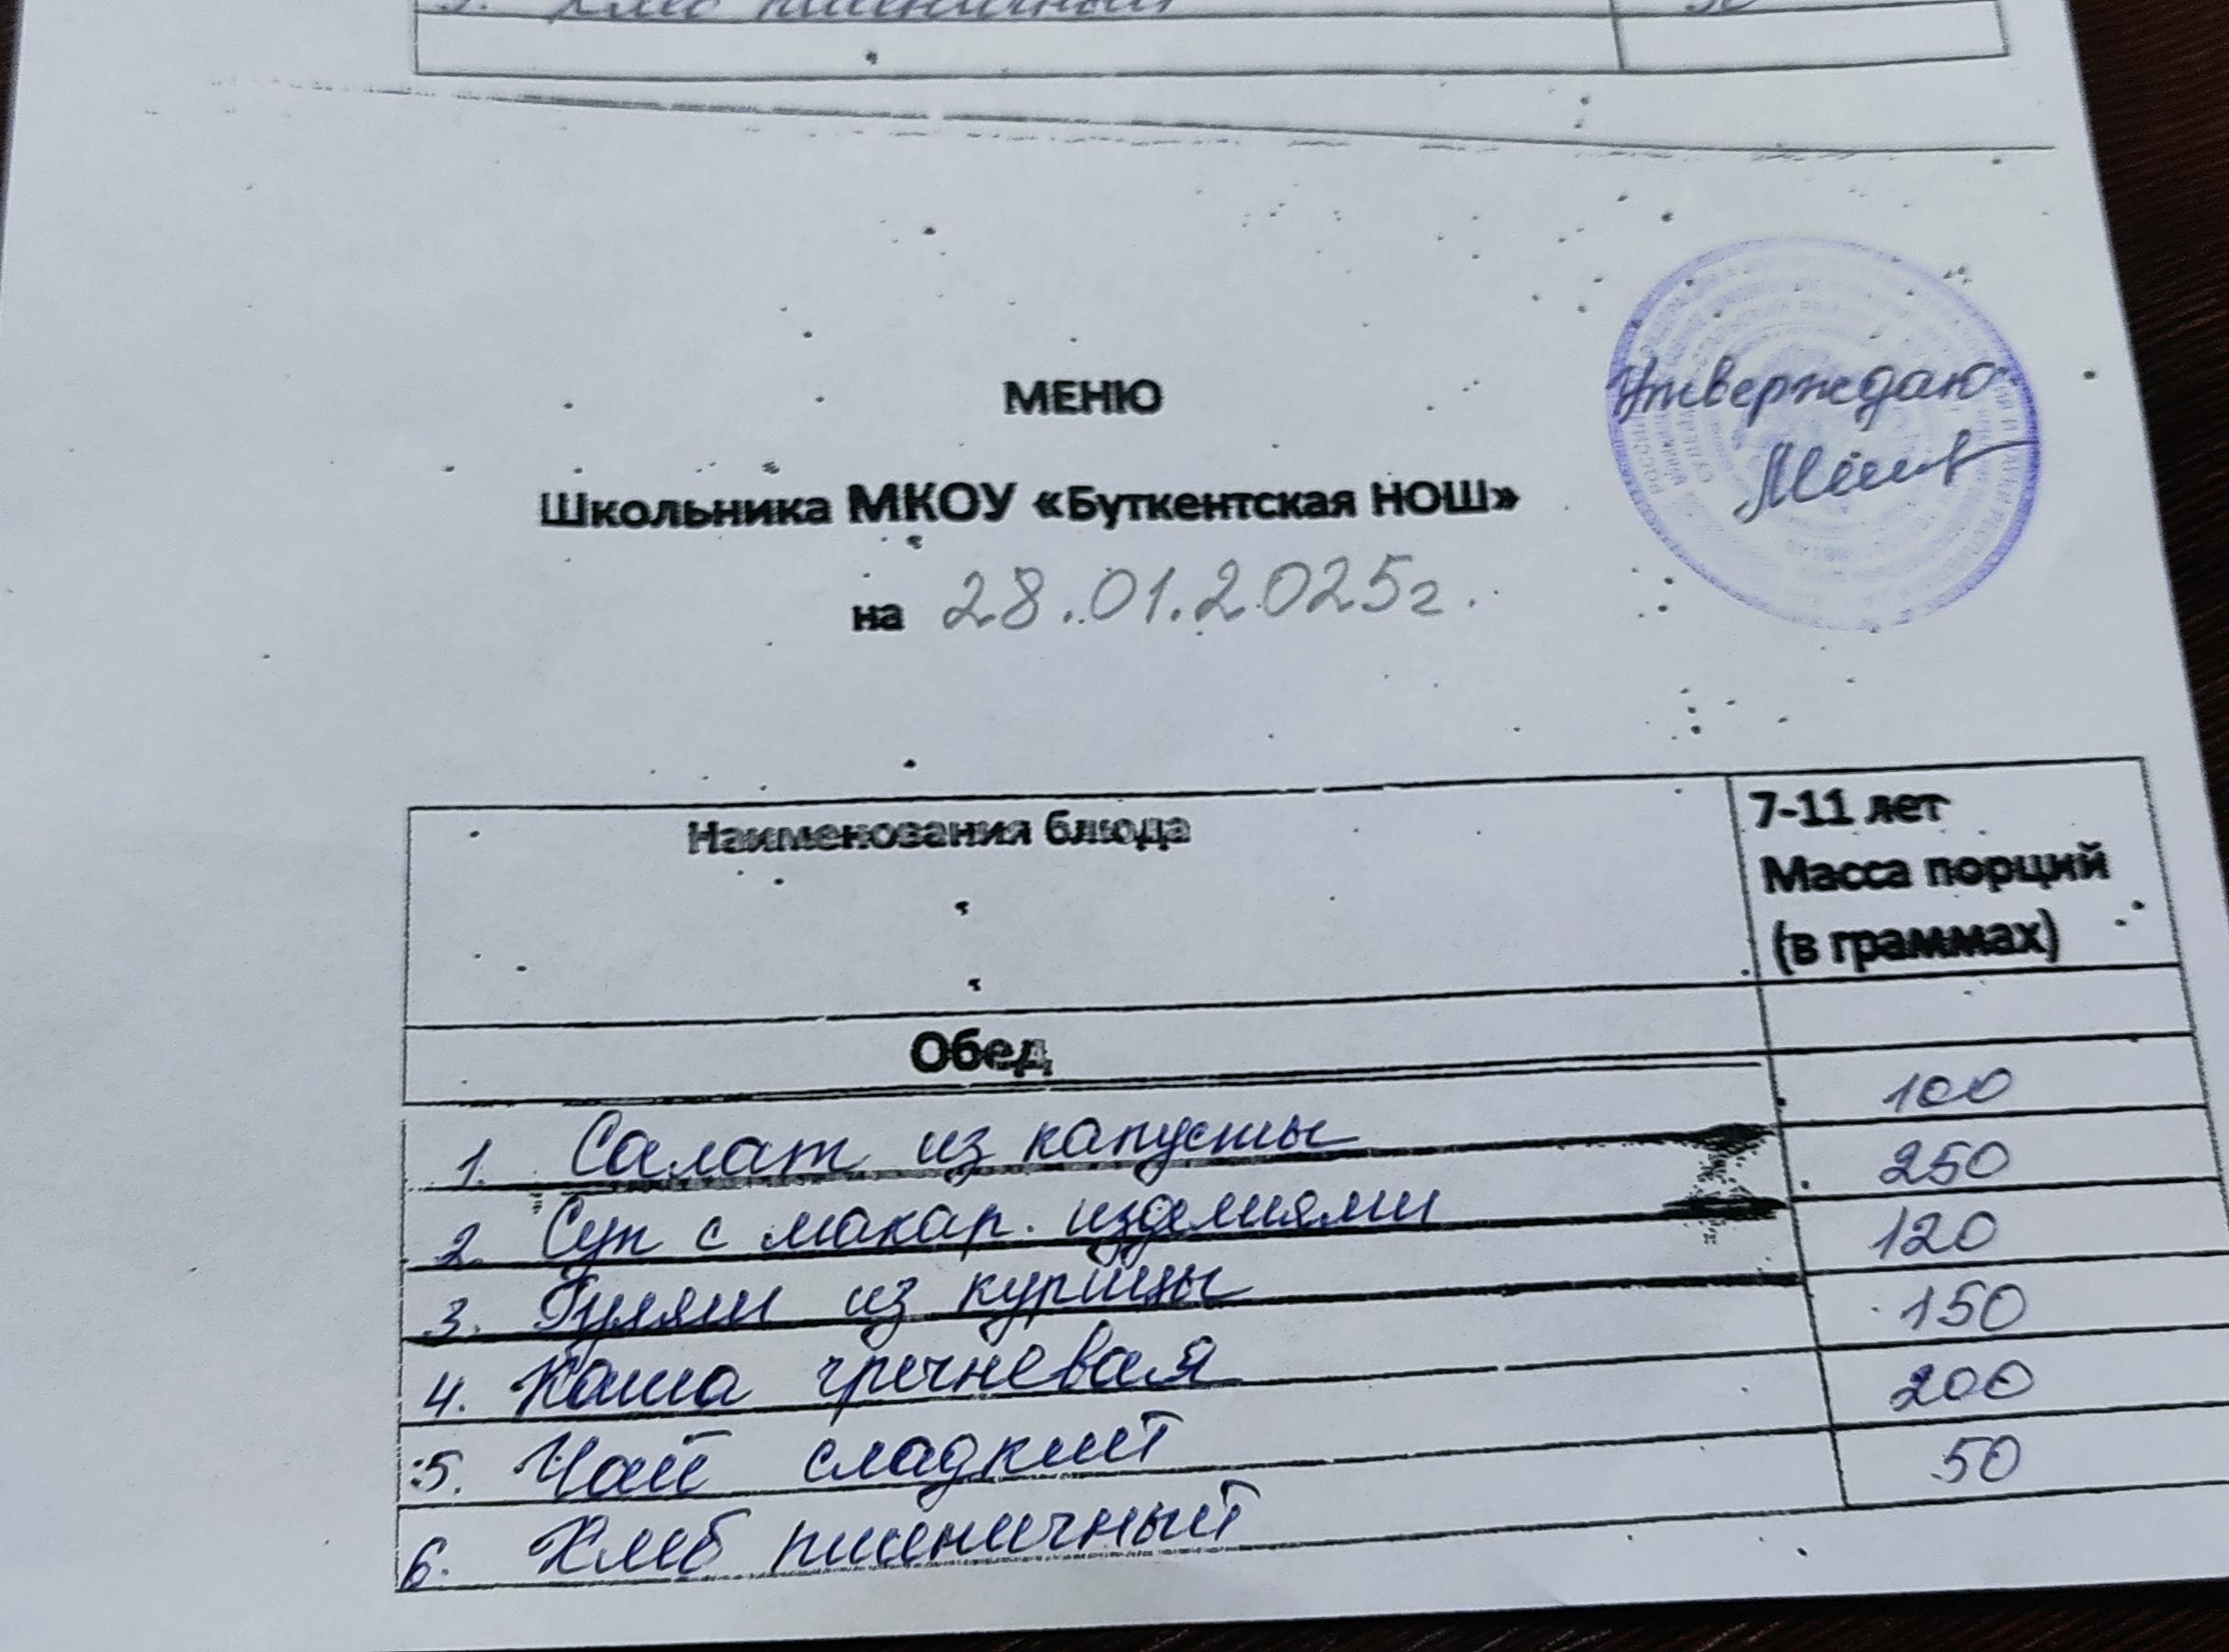 5. Хлеб пшеничный 50
МЕНЮ
Утверждаю
Школьника МКОУ «Буткентская НОШ»
на 28.01.2025г.
Наименования блюда
7-11 лет
Масса порций
(в граммах)
Обед
1. Салат из капусты 100
2. Суп с макар. изделиями 250
3. Гуляш из курицы 120
4. Каша гречневая 150
5. Чай сладкий 200
6. Хлеб пшеничный 50